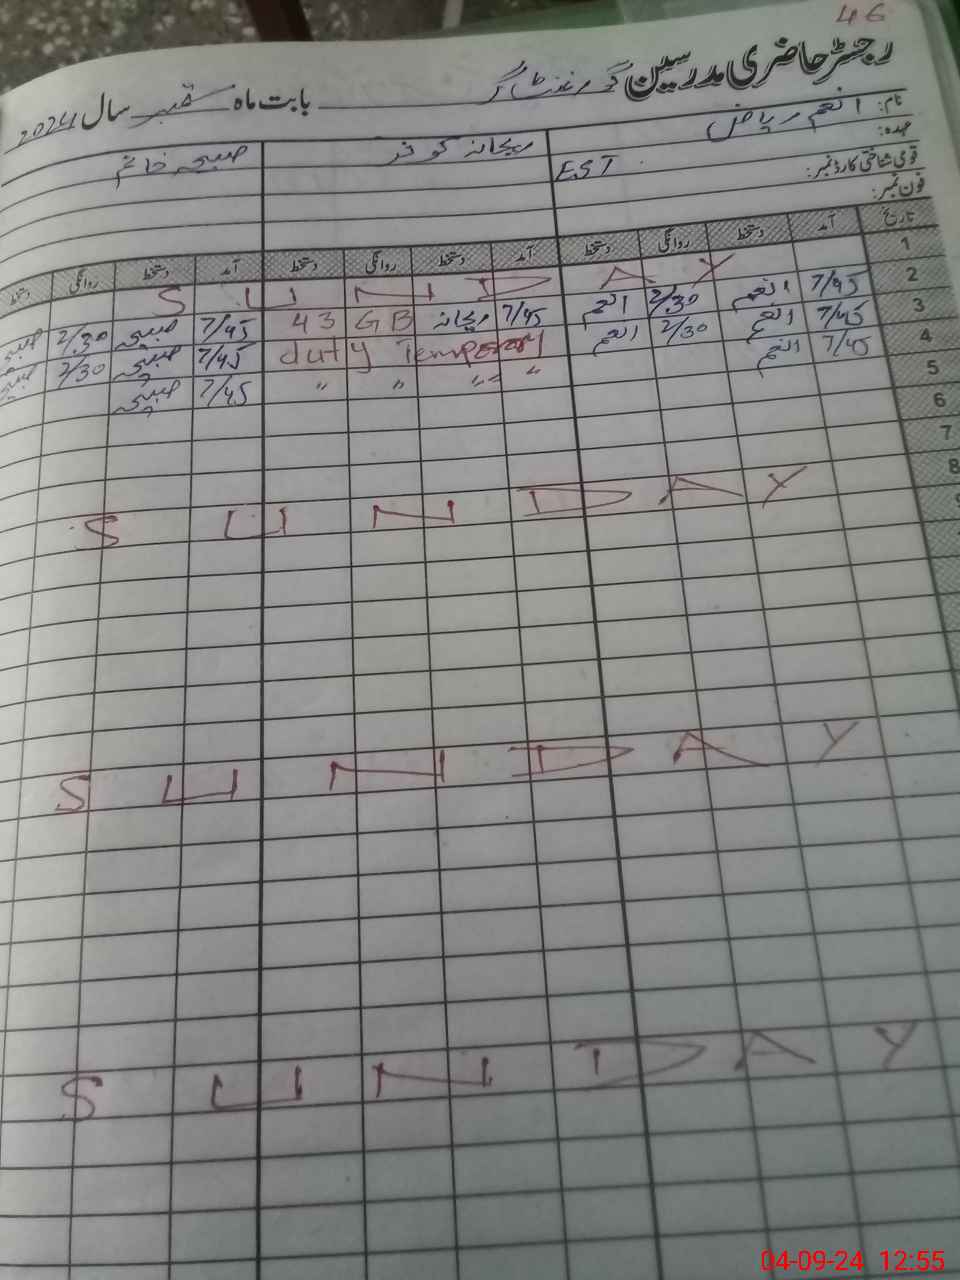 46
رجسٹر حاضری مدرسین گورنمنٹ بابت ماہ ستمبر سال 2024
نام: انعم ریاض ریحانہ کوثر صبیحہ خانم
عہدہ: EST
قومی شناختی کارڈ نمبر:
فون نمبر:
تاریخ آمد دستخط روانگی دستخط آمد دستخط روانگی دستخط آمد دستخط روانگی دستخط
1 S U N D A Y
2 7/45 انعم 2/30 انعم 7/45 ریحانہ 43 GB 7/45 صبیحہ 2/30 صبیحہ
3 7/45 انعم 2/30 انعم duty Temporary 7/45 صبیحہ 2/30 صبیحہ
4 7/45 انعم " " " " 7/45 صبیحہ
5
6
7
8 S U N D A Y
9
S U N D A Y
S U N D A Y
04-09-24 12:55